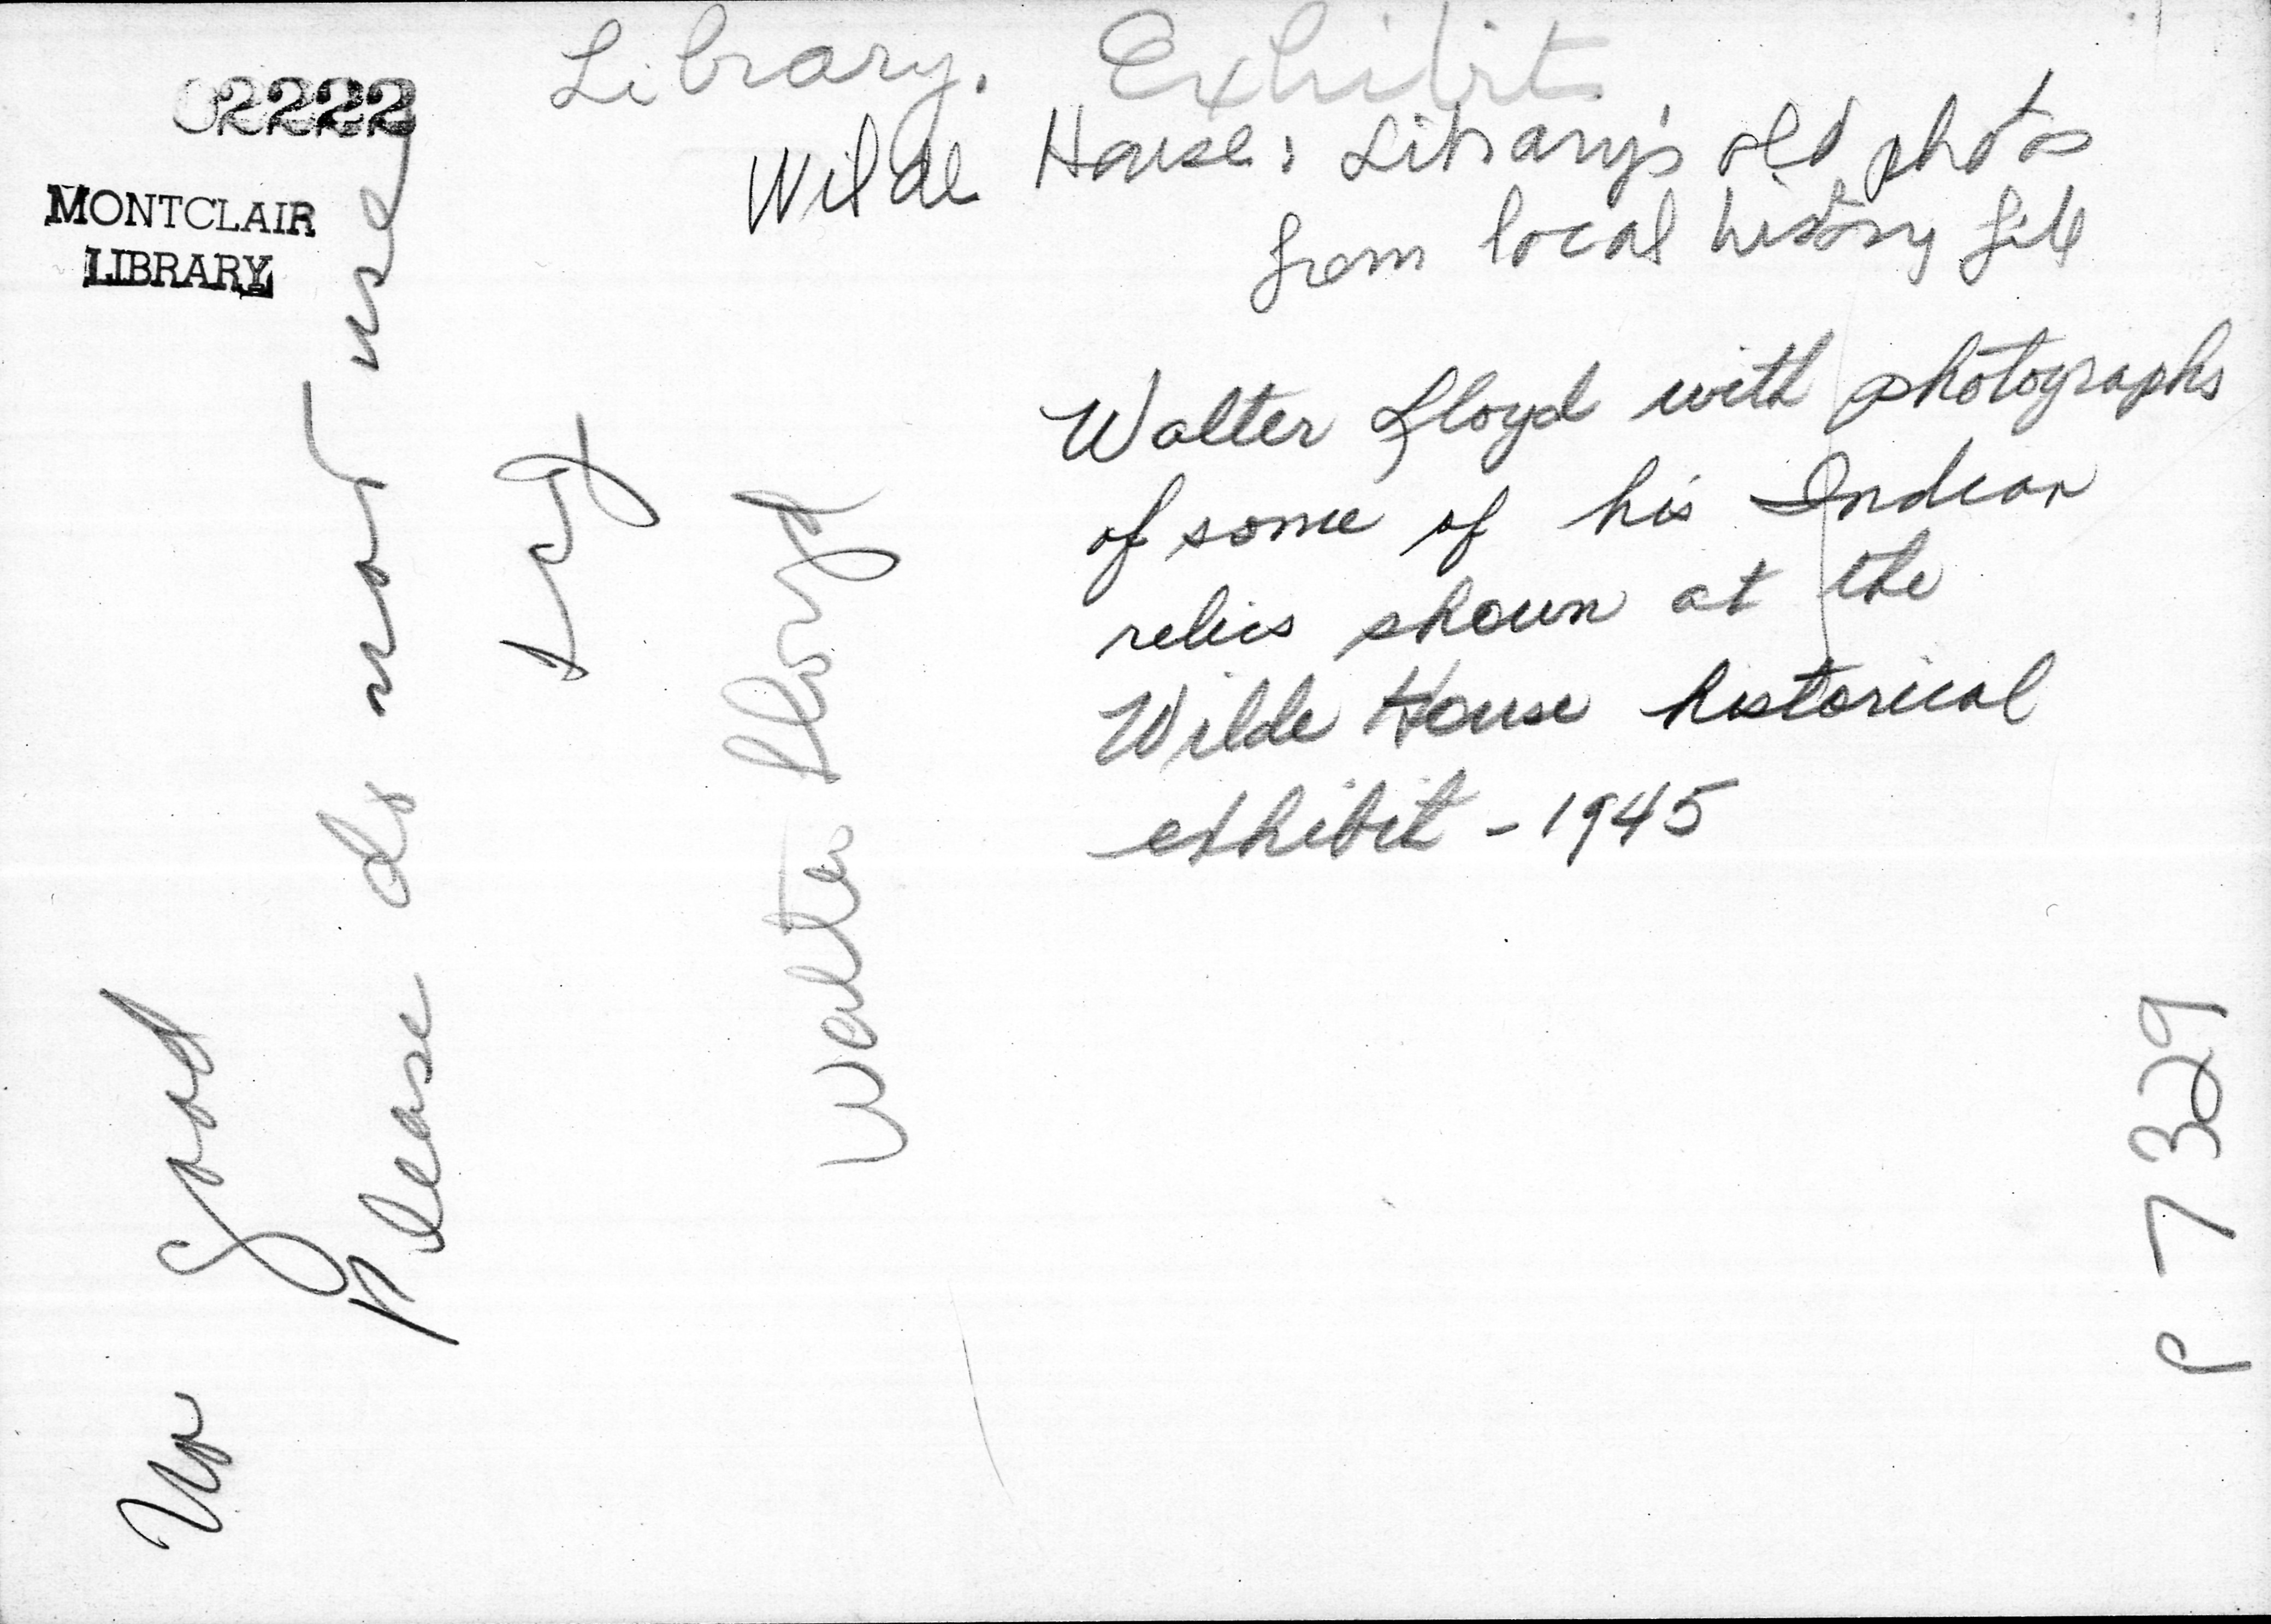 Library. Exhibit
02222
Wilde House: Library's old photos
MONTCLAIR
from local history file
LIBRARY
Walter Lloyd with photographs
of some of his Indian
relics shown at the
Wilde House historical
exhibit - 1945
No Good
Please do not use
Walter Lloyd
P 7329